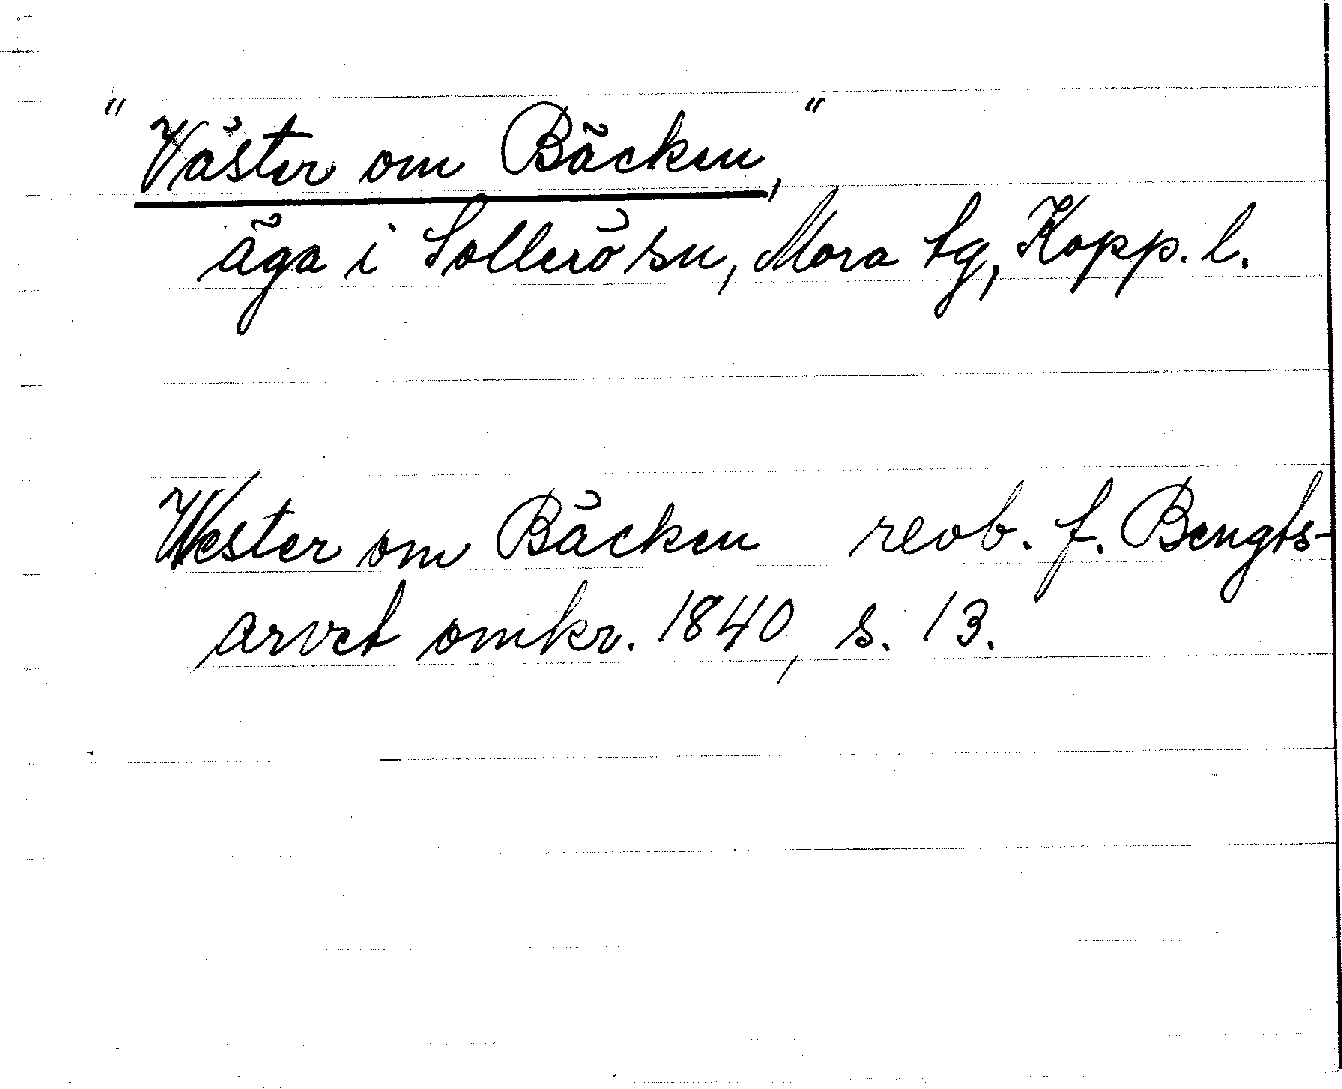 "Väster om Bäcken,"
äga i Sollerö sn, Mora tg, Kopp. l.
Wester om Bäcken reob. f. Bengts-
arvet omkr. 1840, s. 13.